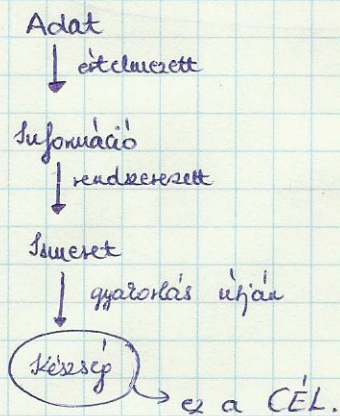 Adat
értelmezett
Információ
rendszerezett
Ismeret
gyakorlás útján
Készség
ez a CÉL.